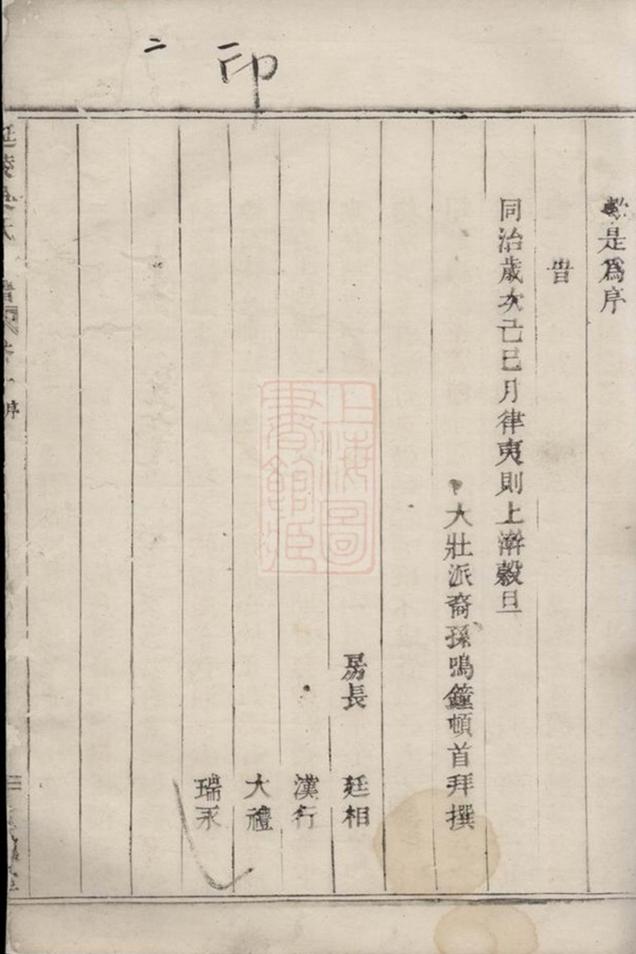 二
印
是爲序
旹
同治歲次己巳月律夷則上澣穀旦
大壯派裔孫鳴鐘頓首拜撰
房長 廷相
漢行
大禮
瑞永
上海圖書館藏
延陵吳氏